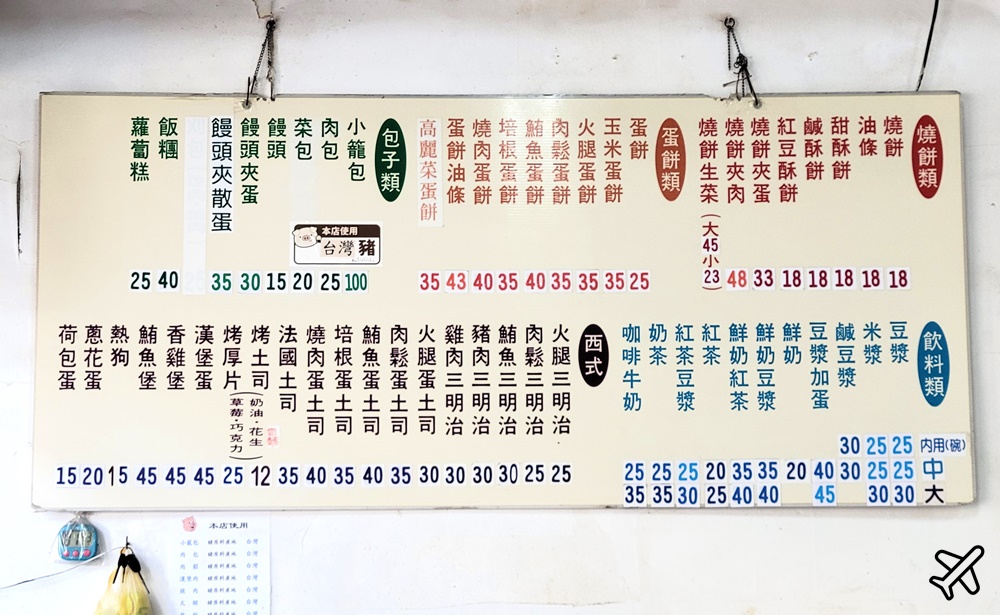 燒餅類
燒餅 18
油條 18
甜酥餅 18
鹹酥餅 18
紅豆酥餅 18
燒餅夾蛋 33
燒餅夾肉 48
燒餅生菜(大45小23)
蛋餅類
蛋餅 25
玉米蛋餅 35
火腿蛋餅 35
肉鬆蛋餅 35
鮪魚蛋餅 40
培根蛋餅 35
燒肉蛋餅 40
蛋餅油條 43
高麗菜蛋餅 35
包子類
小籠包 100
肉包 25
菜包 20
饅頭 15
饅頭夾蛋 30
饅頭夾散蛋 35
飯糰 40
蘿蔔糕 25
本店使用
台灣豬
飲料類
內用(碗)
中
大
豆漿 25 25 30
米漿 25 25 30
鹹豆漿 30 30
豆漿加蛋 40 45
鮮奶 20
鮮奶豆漿 35 40
鮮奶紅茶 35 40
紅茶 20 25
紅茶豆漿 25 30
奶茶 25 35
咖啡牛奶 25 35
西式
火腿三明治 25
肉鬆三明治 25
鮪魚三明治 30
豬肉三明治 30
雞肉三明治 30
火腿蛋土司 30
肉鬆蛋土司 35
鮪魚蛋土司 40
培根蛋土司 35
燒肉蛋土司 40
法國土司 35
烤土司 12
烤厚片 25
(奶油·花生
草莓·巧克力)
漢堡蛋 45
香雞堡 45
鮪魚堡 45
熱狗 15
蔥花蛋 20
荷包蛋 15
本店使用